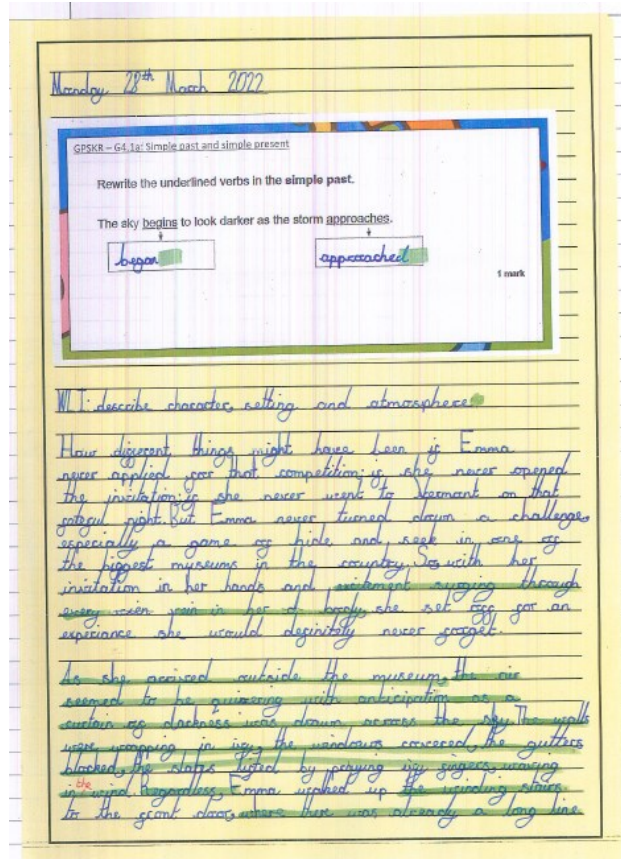 Monday 28th March 2022
GPSKR – G4.1a: Simple past and simple present
Rewrite the underlined verbs in the simple past.
The sky begins to look darker as the storm approaches.
began approached
1 mark
WLI: describe character, setting and atmosphere.
How different things might have been if Emma
never applied for that competition; if she never opened
the invitation; if she never went to Vermont on that
fateful night. But Emma never turned down a challenge,
especially a game of hide and seek in one of
the biggest museums in the country. So, with her
invitation in her hands and excitement surging through
every vein in her body, she set off for an
experiance she would definitely never forget.
As she arrived outside the museum, the air
seemed to be quivering with anticipation as a
curtain of darkness was drawn across the sky. The walls
were wrapping in ivy, the windows covered, the gutters
blocked, the slates lifted by prying ivy fingers, waving
in the wind. Regardless, Emma walked up the winding stairs
to the front door, where there was already a long line